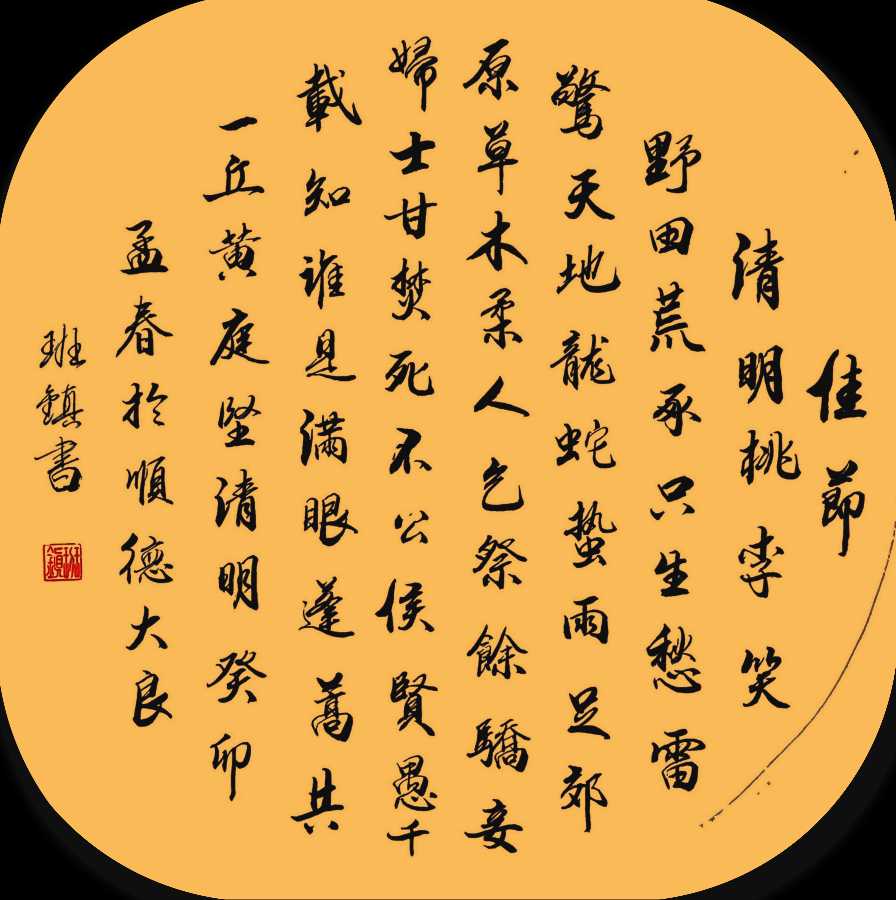 佳節
清明桃李笑
野田荒冢只生愁雷
驚天地龍蛇蛰雨足郊
原草木柔人乞祭餘驕妾
婦士甘焚死不公侯賢愚千
載知誰是滿眼蓬蒿共
一丘黄庭堅清明癸卯
孟春於順德大良
班鎮書
班鎮